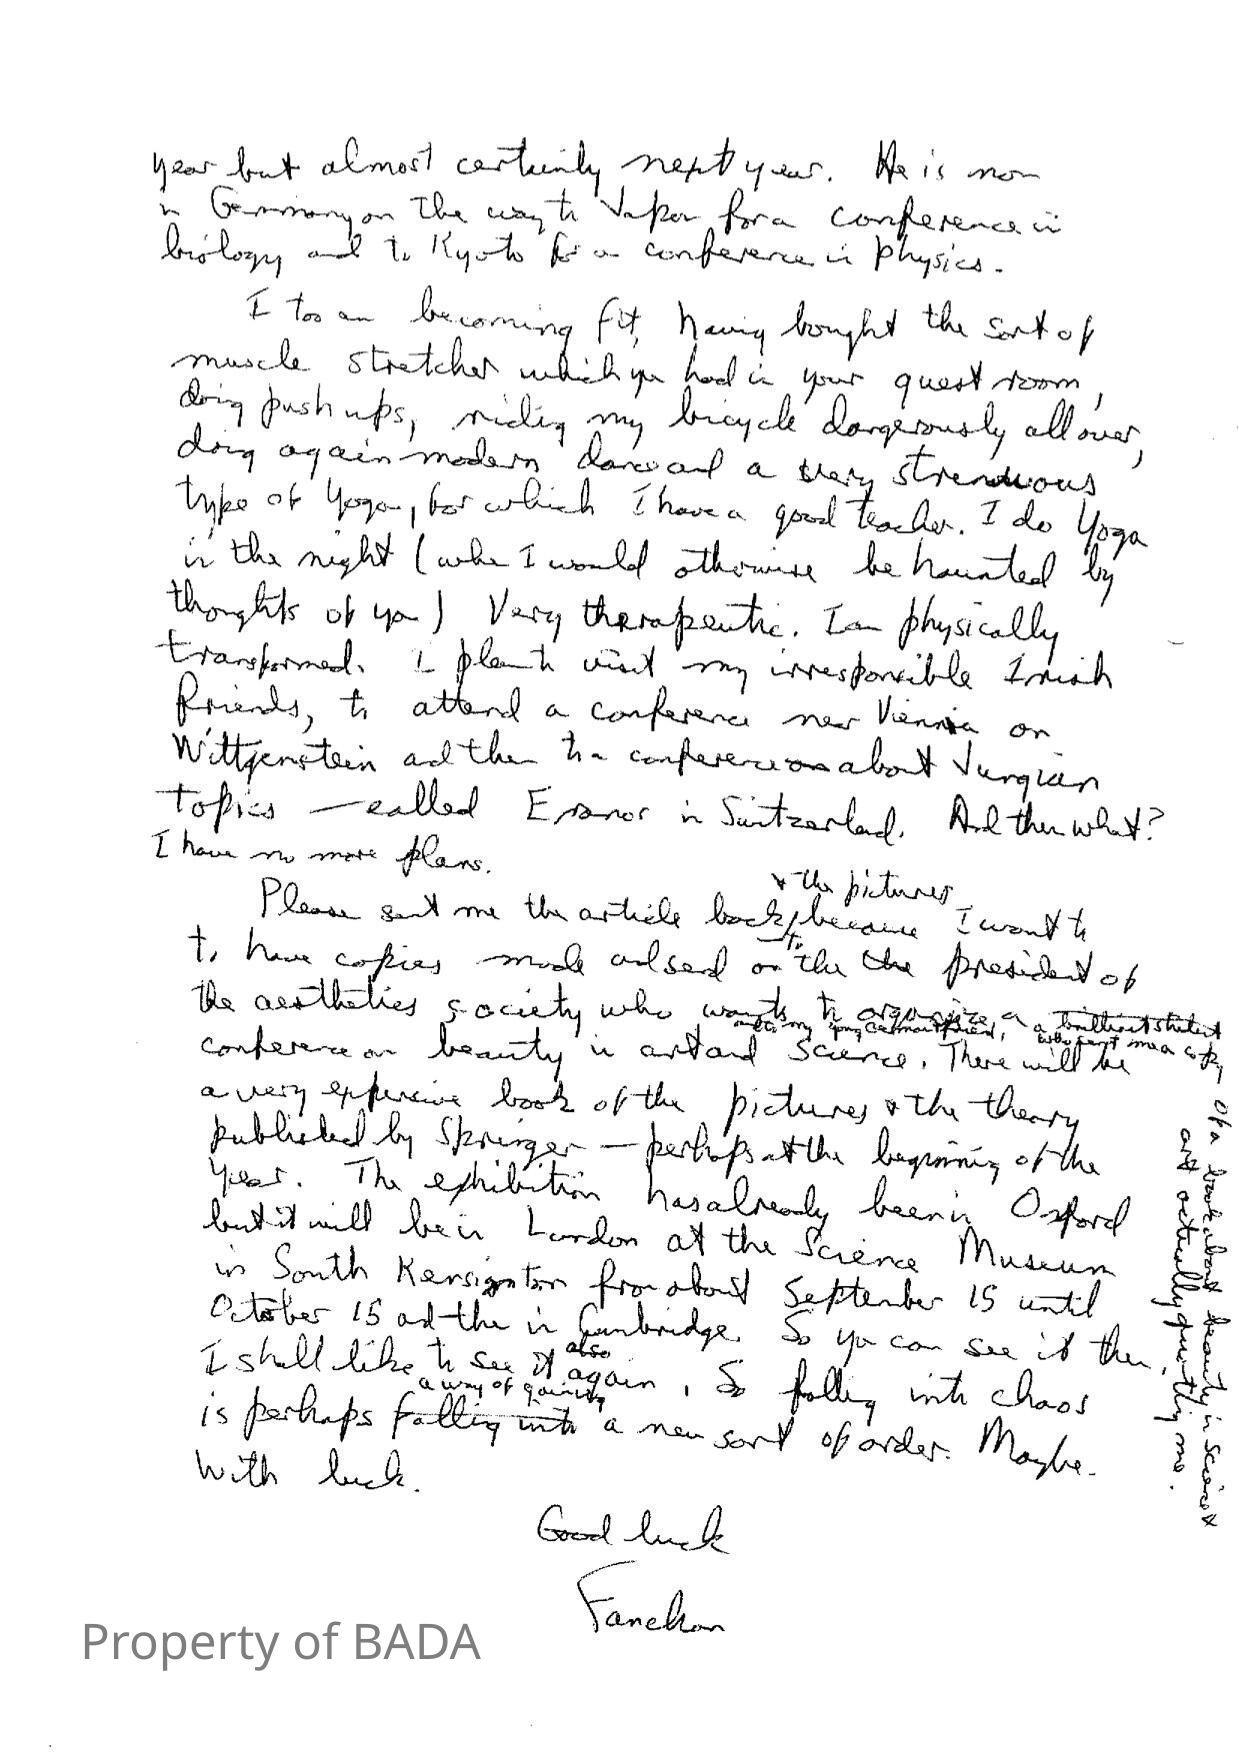 year but almost certainly next year. He is now
in Germany on the way to Japan for a conference in
biology and to Kyoto for a conference in physics.
I too am becoming fit, having bought the sort of
muscle stretcher which you had in your guest room,
doing push ups, riding my bicycle dangerously all over,
doing again modern dance and a very strenuous
type of Yoga, for which I have a good teacher. I do Yoga
in the night (when I would otherwise be haunted by
thoughts of you) Very therapeutic. I am physically
transformed. I plan to visit my irresponsible Irish
friends, to attend a conference near Vienna on
Wittgenstein and then to a conference on about Jungian
topics — called Eranos in Switzerland. And then what?
I have no more plans.
& the pictures
Please sent me the article back, because I want to
to have copies made and send on to the the president of
the aesthetics society who wants to organise a
and to my young German friend, a brilliant student who sent me a copy
conference on beauty in art and science. There will be
a very expensive book of the pictures & the theory
published by Springer — perhaps at the beginning of the
year. The exhibition has already been in Oxford
but it will be in London at the Science Museum
in South Kensington from about September 15 until
October 15 and the in Cambridge. So you can see it then.
I shall like to see it also again. So falling into chaos
a way of gaining
is perhaps falling into a new sort of order. Maybe.
With luck.
Good luck
Fanchon
of a book about beauty in science &
art actually quoting me.
Property of BADA